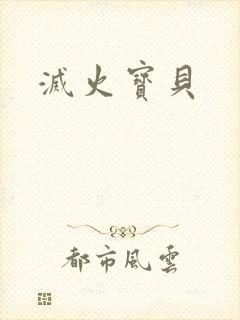 滅火寶貝
都市風雲